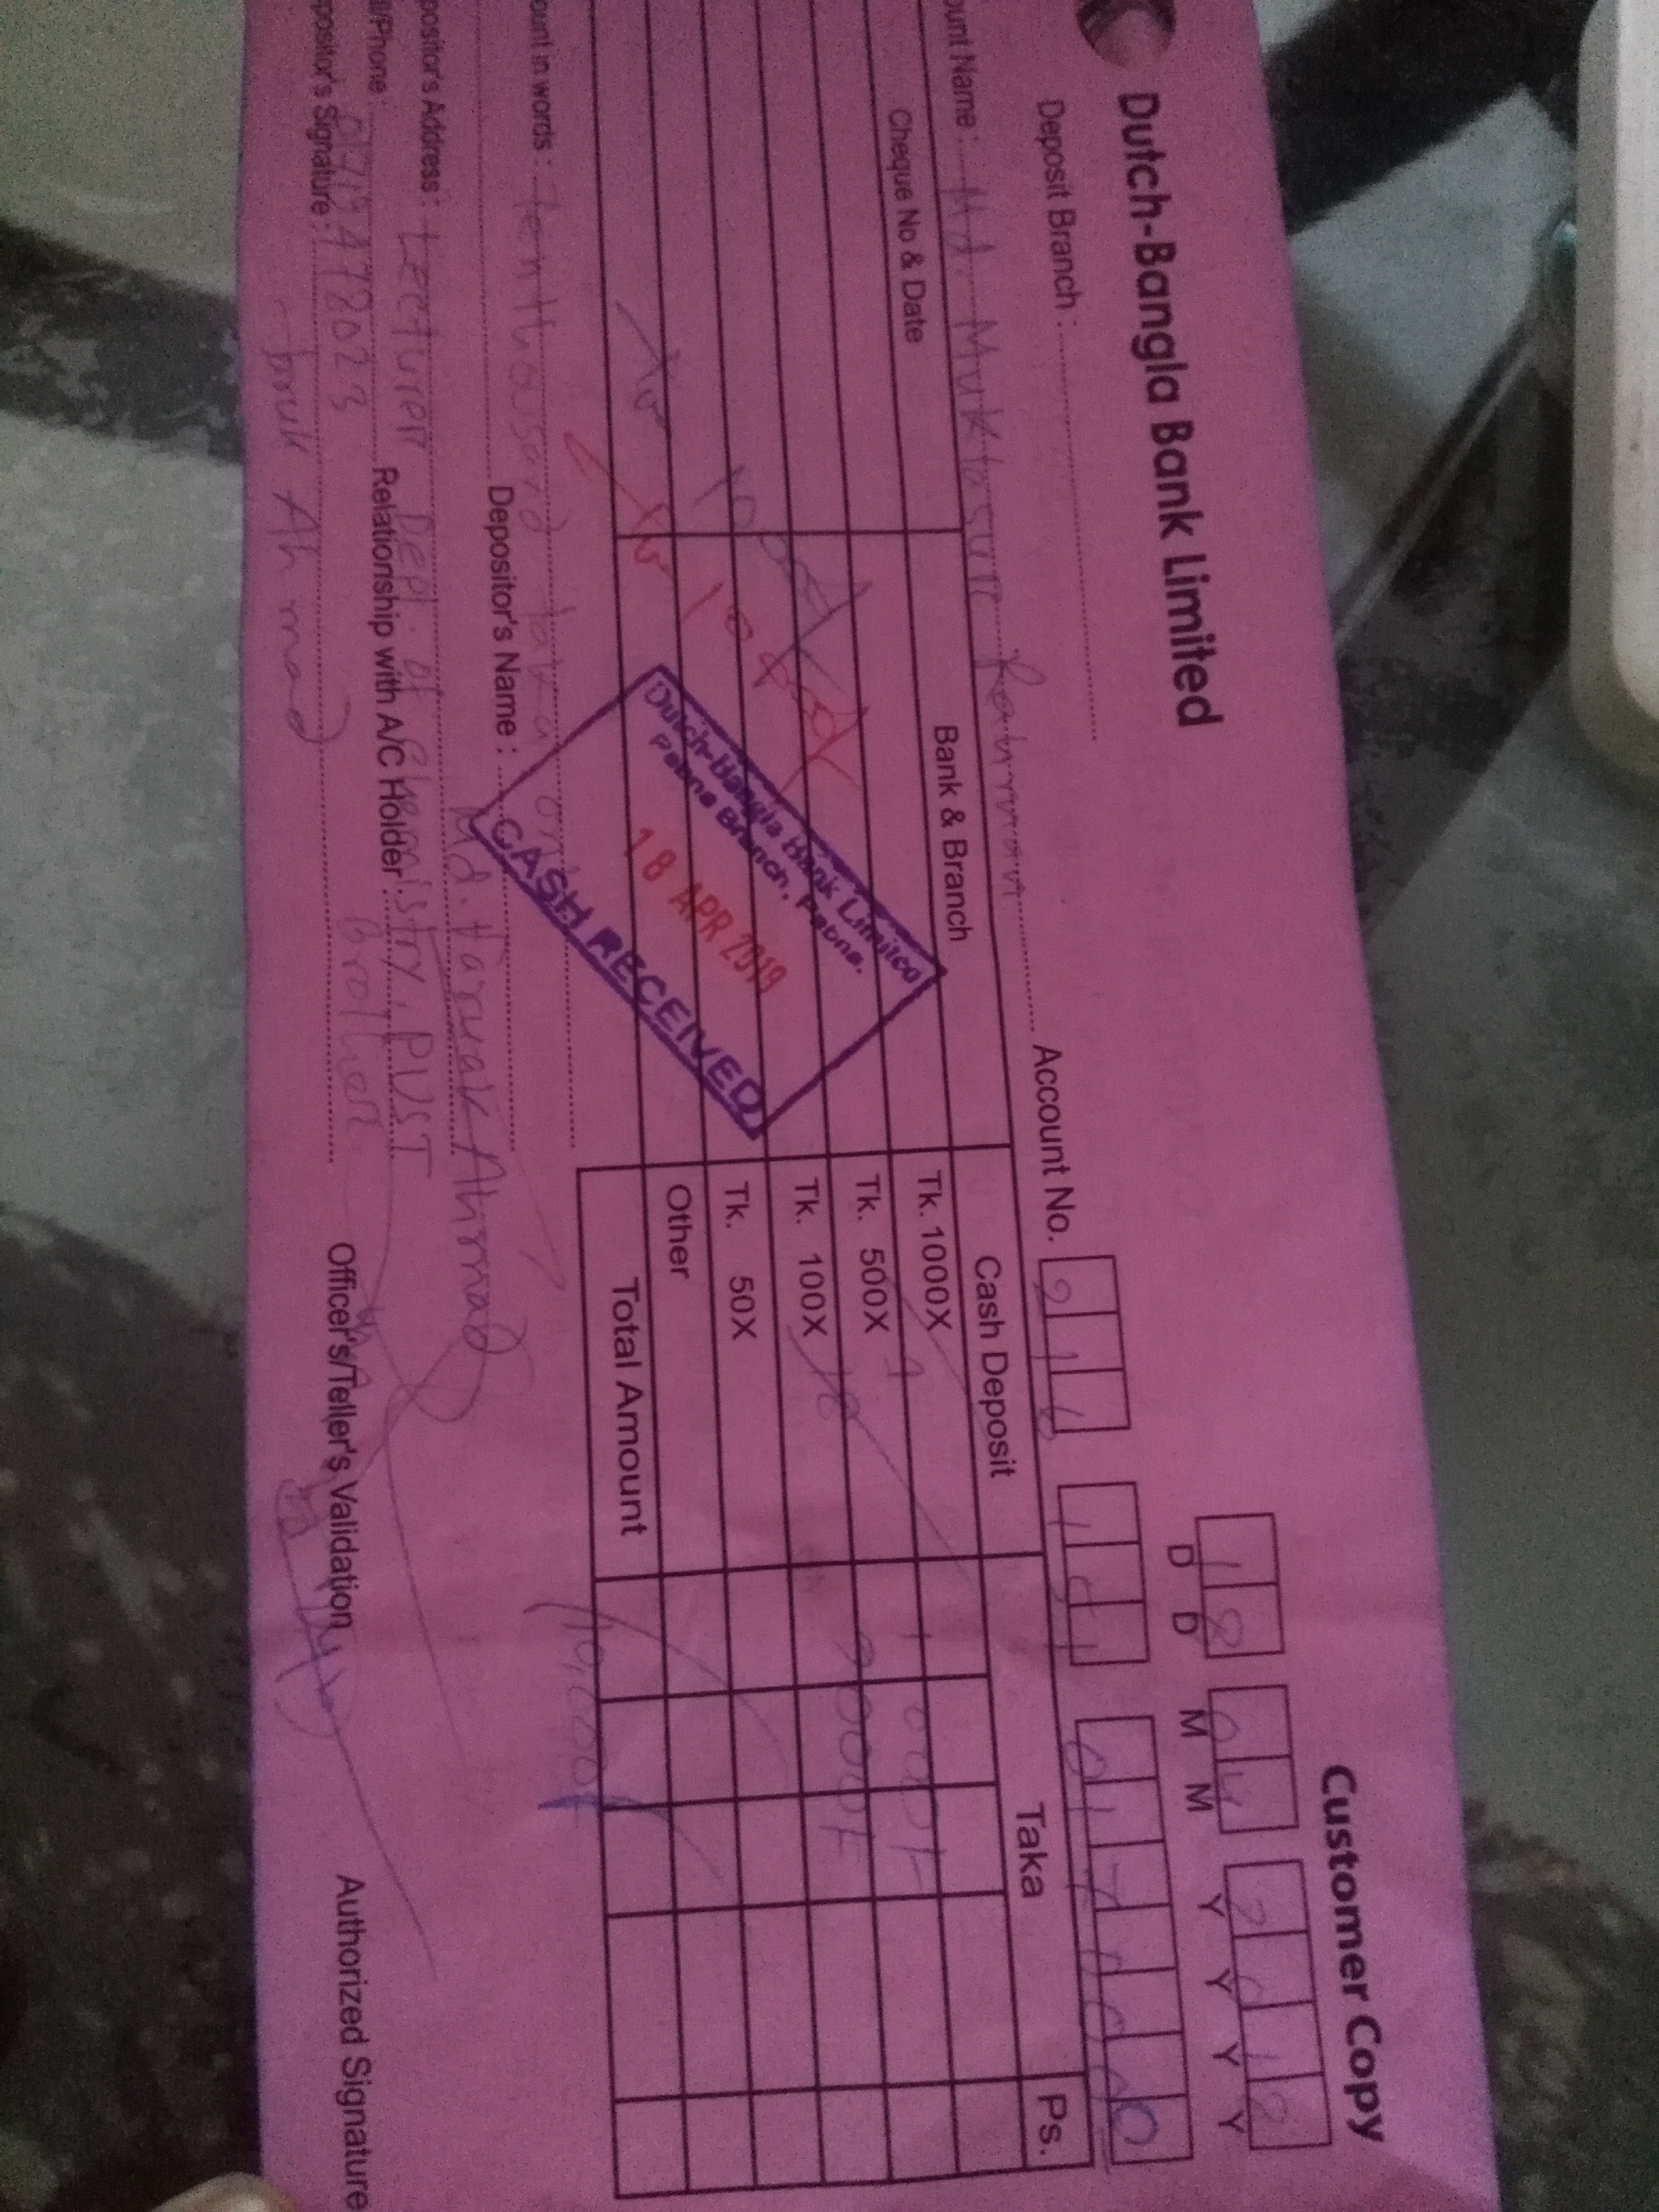 Dutch-Bangla Bank Limited
Customer Copy
Deposit Branch :
D D M M Y Y Y Y
18 04
ount Name : Md. Muktasur Rahman
Account No.
Cheque No & Date
Bank & Branch
Cash Deposit
Taka
Ps.
Tk. 1000X 1 1000/-
Tk. 500X 18 9000/-
Tk. 100X
Tk. 50X
Other
Total Amount 10,000/-
Dutch-Bangla Bank Limited
Pabna Branch, Pabna.
18 APR 2019
CASH RECEIVED
ount in words : Ten thousand taka only
Depositor's Name : Md. Faruak Ahmad
positor's Address : Lecturer Dept. of Chemistry, PUST
l/Phone :
Relationship with A/C Holder : Brother
positor's Signature :
Ahmad
Officer's/Teller's Validation
Authorized Signature